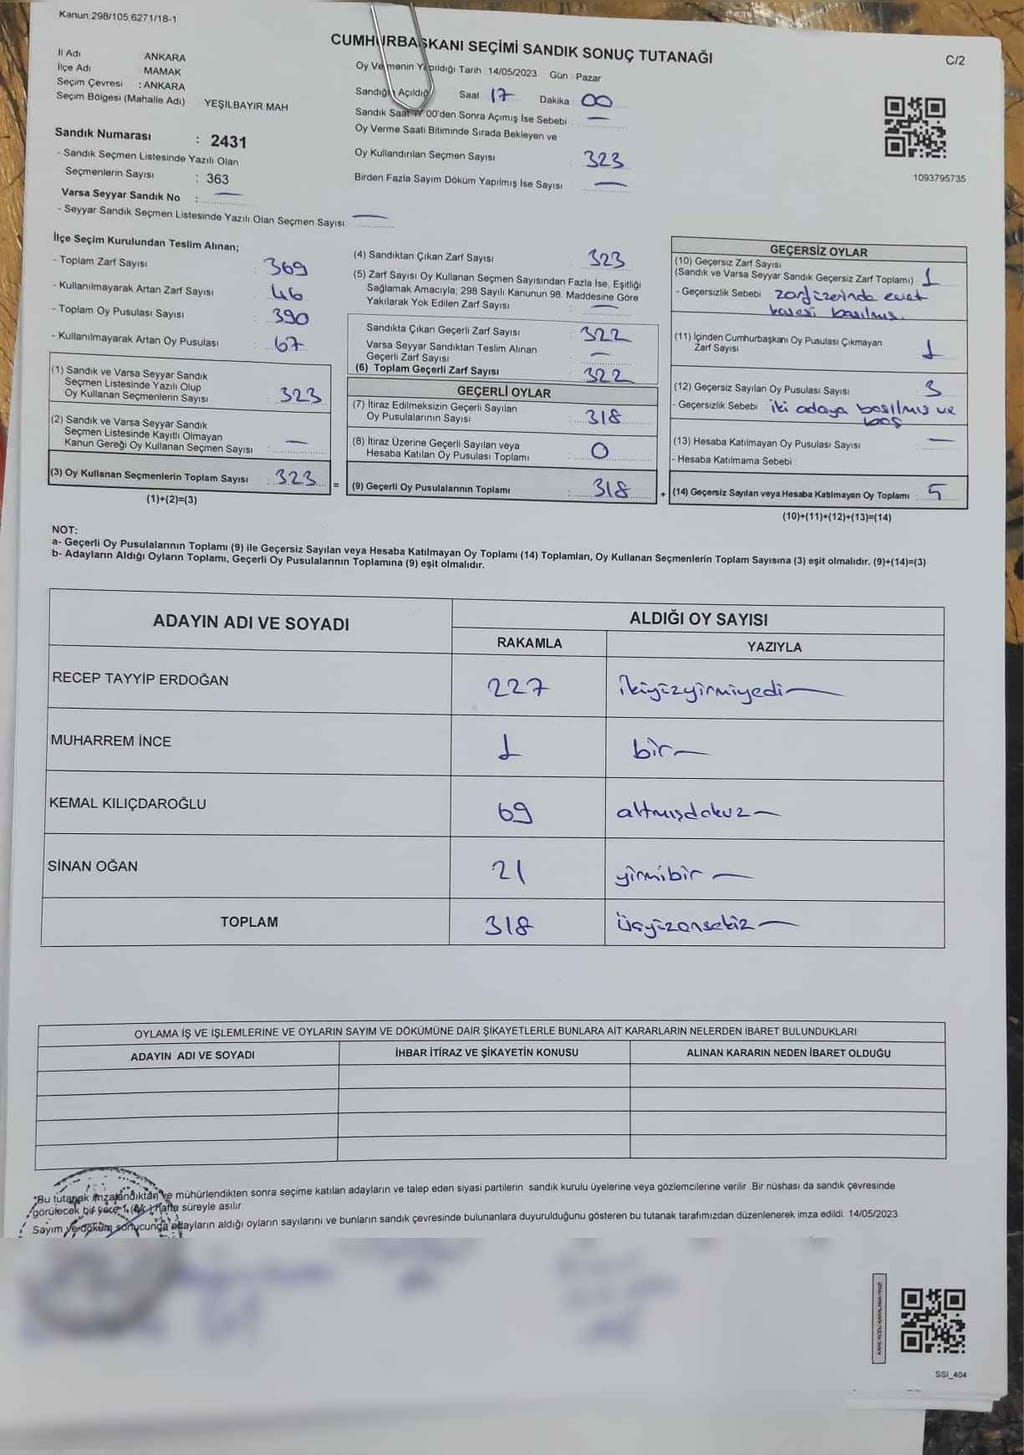 Kanun.298/105,6271/18-1
CUMHURBAŞKANI SEÇİMİ SANDIK SONUÇ TUTANAĞI
C/2
İl Adı ANKARA
İlçe Adı MAMAK
Seçim Çevresi : ANKARA
Seçim Bölgesi (Mahalle Adı) YEŞİLBAYIR MAH
Oy Vermenin Yapıldığı Tarih 14/05/2023 Gün Pazar
Sandığın Açıldığı Saat 17 Dakika 00
Sandık Saat 17 00'den Sonra Açımış İse Sebebi : —
Oy Verme Saati Bitiminde Sırada Bekleyen ve
Oy Kullandırılan Seçmen Sayısı : 323
Birden Fazla Sayım Döküm Yapılmış İse Sayısı —
1093795735
Sandık Numarası : 2431
- Sandık Seçmen Listesinde Yazılı Olan
Seçmenlerin Sayısı : 363
Varsa Seyyar Sandık No : —
- Seyyar Sandık Seçmen Listesinde Yazılı Olan Seçmen Sayısı: —
İlçe Seçim Kurulundan Teslim Alınan;
- Toplam Zarf Sayısı 369
- Kullanılmayarak Artan Zarf Sayısı 46
- Toplam Oy Pusulası Sayısı 390
- Kullanılmayarak Artan Oy Pusulası : 67
(1) Sandık ve Varsa Seyyar Sandık
Seçmen Listesinde Yazılı Olup
Oy Kullanan Seçmenlerin Sayısı : 323
(2) Sandık ve Varsa Seyyar Sandık
Seçmen Listesinde Kayıtlı Olmayan
Kanun Gereği Oy Kullanan Seçmen Sayısı : —
(3) Oy Kullanan Seçmenlerin Toplam Sayısı : 323 =
(1)+(2)=(3)
(4) Sandıktan Çıkan Zarf Sayısı : 323
(5) Zarf Sayısı Oy Kullanan Seçmen Sayısından Fazla İse, Eşitliği
Sağlamak Amacıyla; 298 Sayılı Kanunun 98. Maddesine Göre
Yakılarak Yok Edilen Zarf Sayısı : —
Sandıkta Çıkan Geçerli Zarf Sayısı : 322
Varsa Seyyar Sandıktan Teslim Alınan
Geçerli Zarf Sayısı : —
(6) Toplam Geçerli Zarf Sayısı : 322
GEÇERLİ OYLAR
(7) İtiraz Edilmeksizin Geçerli Sayılan
Oy Pusulalarının Sayısı : 318
(8) İtiraz Üzerine Geçerli Sayılan veya
Hesaba Katılan Oy Pusulası Toplamı : 0
(9) Geçerli Oy Pusulalarının Toplamı : 318 +
GEÇERSİZ OYLAR
(10) Geçersiz Zarf Sayısı
(Sandık ve Varsa Seyyar Sandık Geçersiz Zarf Toplamı) : 1
- Geçersizlik Sebebi zarf üzerinde evet
kaşesi basılmış.
(11) İçinden Cumhurbaşkanı Oy Pusulası Çıkmayan
Zarf Sayısı : 1
(12) Geçersiz Sayılan Oy Pusulası Sayısı : 3
- Geçersizlik Sebebi iki adaya basılmış ve
boş
(13) Hesaba Katılmayan Oy Pusulası Sayısı : —
- Hesaba Katılmama Sebebi :
(14) Geçersiz Sayılan veya Hesaba Katılmayan Oy Toplamı : 5
(10)+(11)+(12)+(13)=(14)
NOT:
a- Geçerli Oy Pusulalarının Toplamı (9) ile Geçersiz Sayılan veya Hesaba Katılmayan Oy Toplamı (14) Toplamları, Oy Kullanan Seçmenlerin Toplam Sayısına (3) eşit olmalıdır. (9)+(14)=(3)
b- Adayların Aldığı Oyların Toplamı, Geçerli Oy Pusulalarının Toplamına (9) eşit olmalıdır.
ADAYIN ADI VE SOYADI ALDIĞI OY SAYISI
RAKAMLA YAZIYLA
RECEP TAYYİP ERDOĞAN 227 ikiyüzyirmiyedi —
MUHARREM İNCE 1 bir —
KEMAL KILIÇDAROĞLU 69 altmışdokuz —
SİNAN OĞAN 21 yirmibir —
TOPLAM 318 üçyüzonsekiz —
OYLAMA İŞ VE İŞLEMLERİNE VE OYLARIN SAYIM VE DÖKÜMÜNE DAİR ŞİKAYETLERLE BUNLARA AİT KARARLARIN NELERDEN İBARET BULUNDUKLARI
ADAYIN ADI VE SOYADI İHBAR İTİRAZ VE ŞİKAYETİN KONUSU ALINAN KARARIN NEDEN İBARET OLDUĞU
*Bu tutanak imzalandıktan ve mühürlendikten sonra seçime katılan adayların ve talep eden siyasi partilerin sandık kurulu üyelerine veya gözlemcilerine verilir. Bir nüshası da sandık çevresinde
görülecek bir yere 1 (bir) hafta süreyle asılır.
Sayım ve döküm sonucunda adayların aldığı oyların sayılarını ve bunların sandık çevresinde bulunanlara duyurulduğunu gösteren bu tutanak tarafımızdan düzenlenerek imza edildi. 14/05/2023
SSI_404